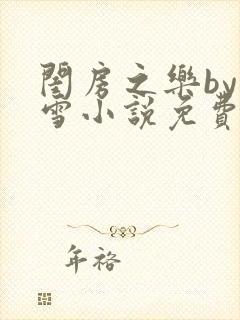 閨房之樂by
雪小說免費
年裕